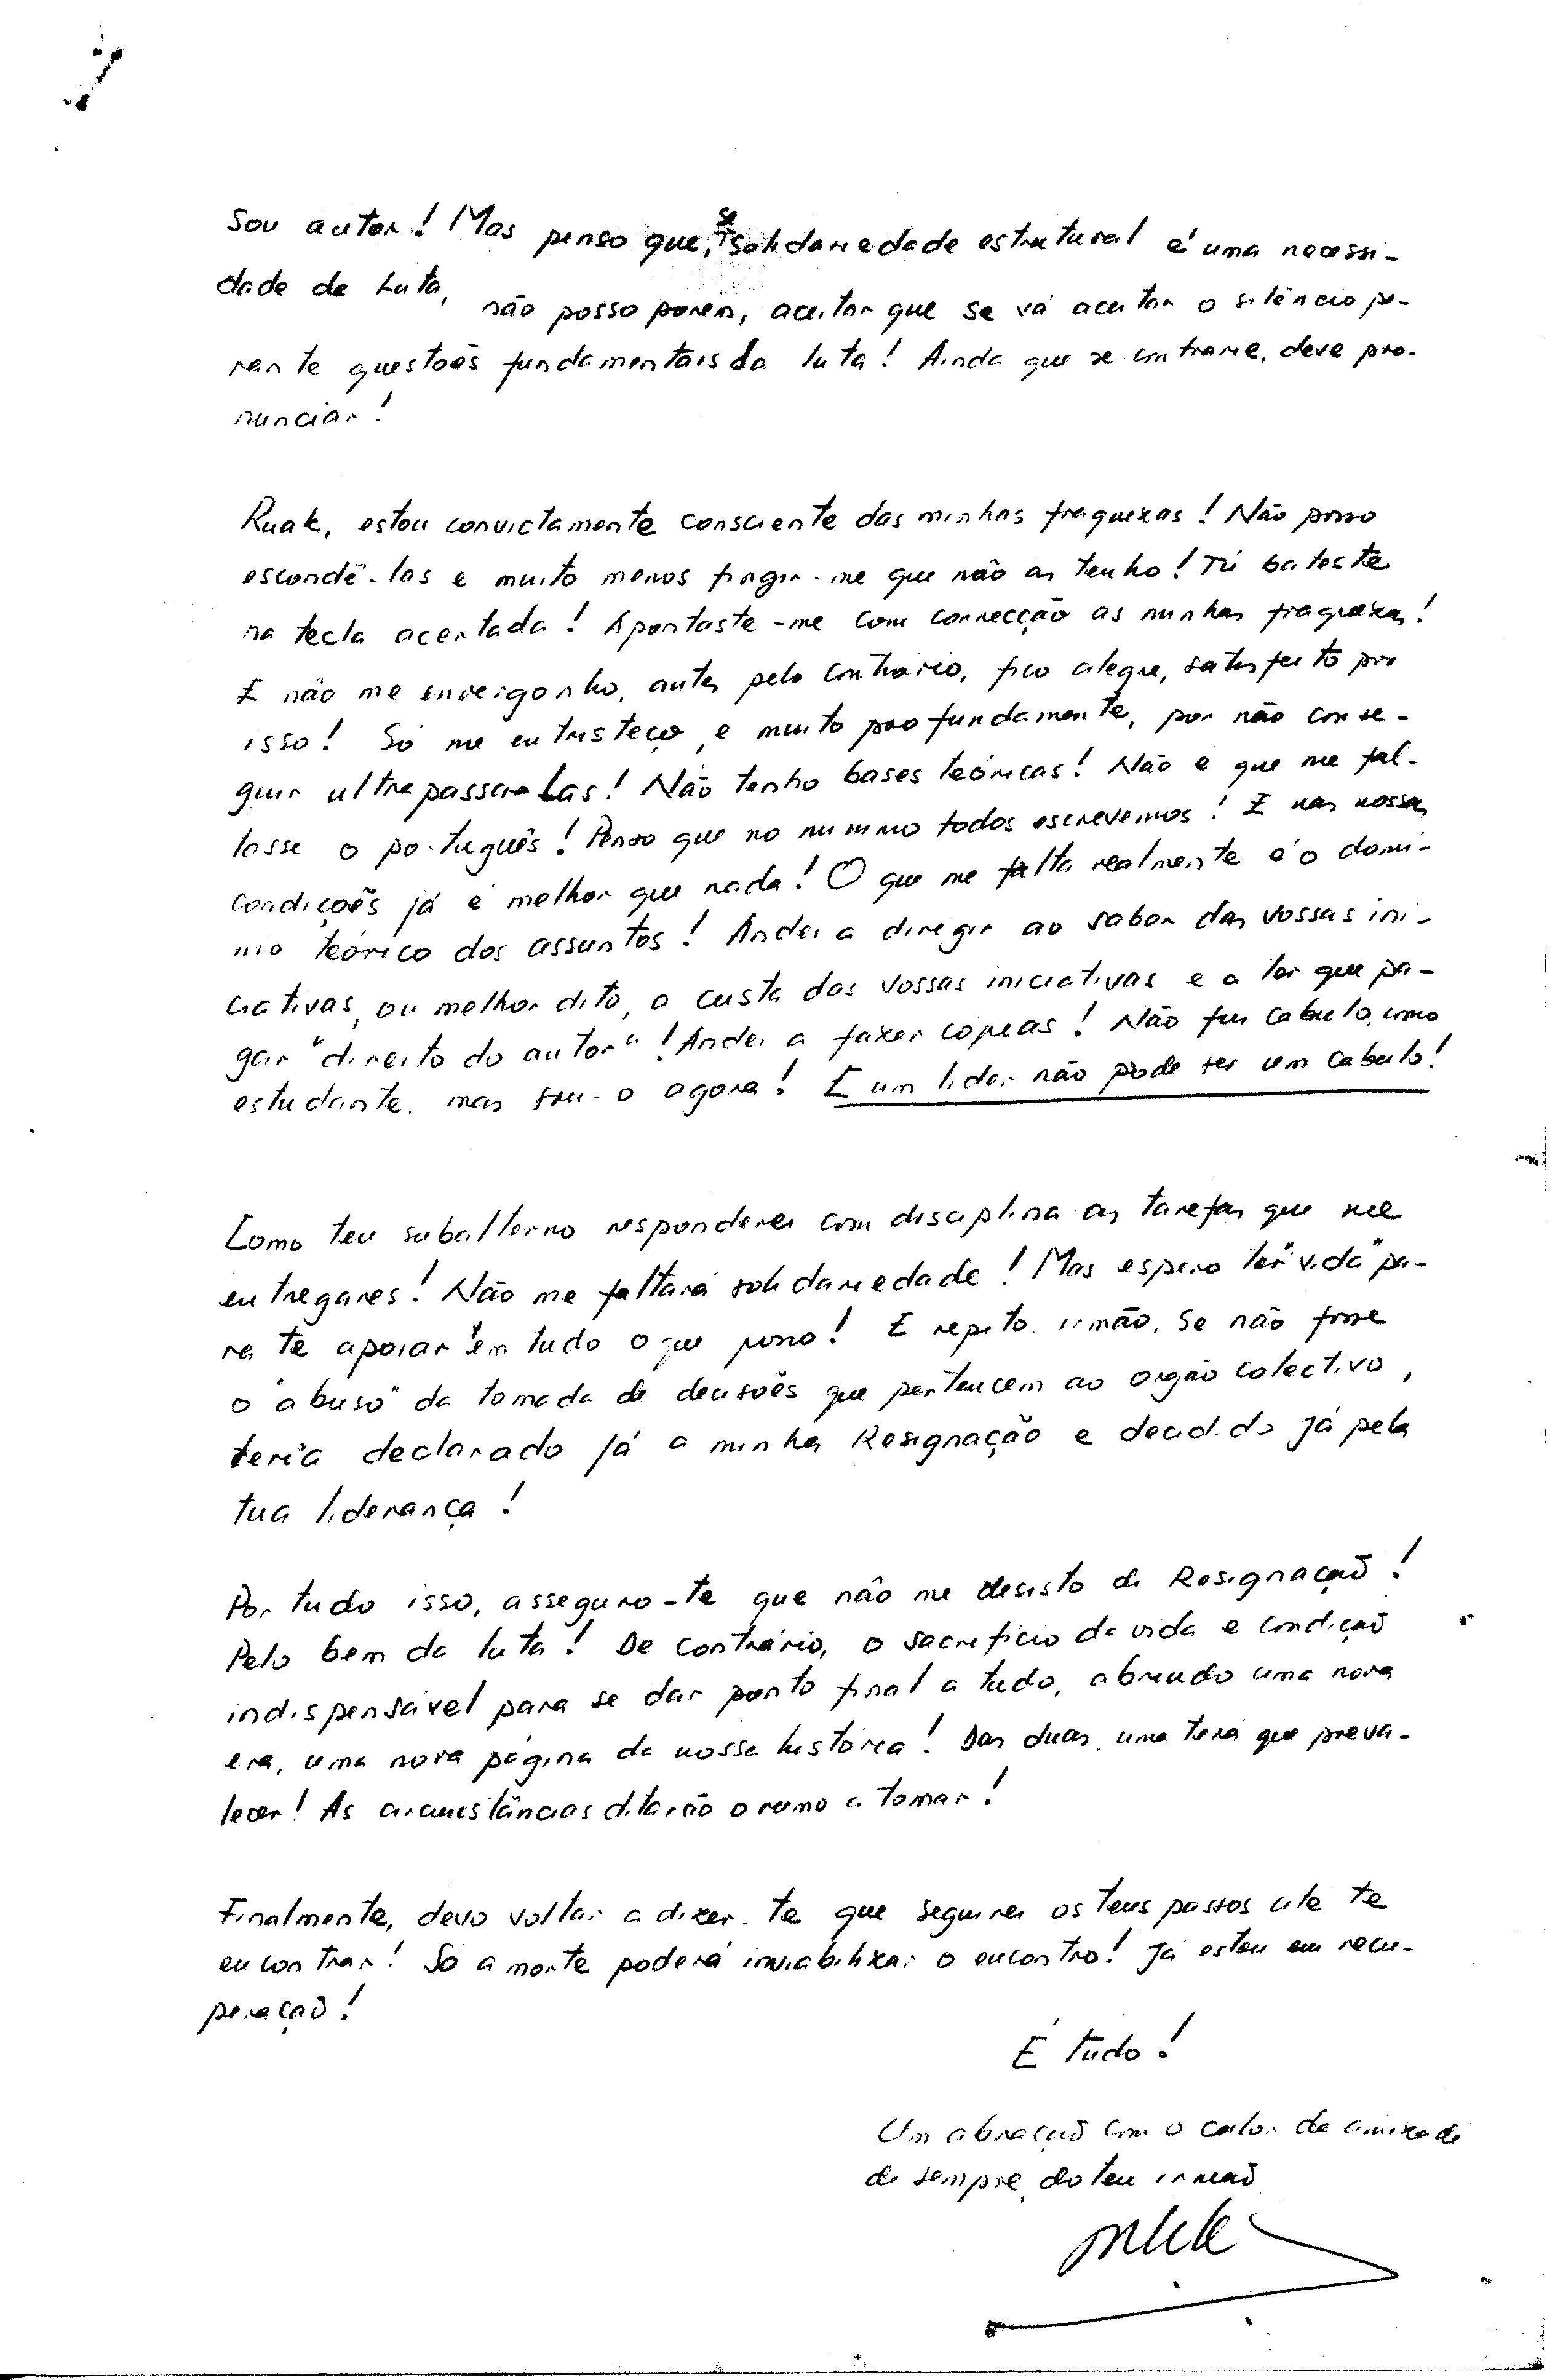 Sou autor! Mas penso que, se solidariedade estrutural é uma necessi-
dade de luta, não posso porém, aceitar que se vá aceitar o silêncio pe-
rante questoẽs fundamentais da luta! Ainda que se contrarie, deve pro-
nunciar!
Ruak, estou convictamente consciente das minhas fraquezas! Não posso
escondê-las e muito menos fingir-me que não as tenho! Tú bateste
na tecla acertada! Apontaste-me com correcção as minhas fraquezas!
E não me envergonho, antes pelo contrario, fico alegre, satisfeito por
isso! Só me entristeço, e muito profundamente, por não conse-
guir ultrapassa-las! Não tenho bases teóricas! Não é que me fal-
tasse o português! Penso que no minimo todos escrevemos! E nas nossas
condiçoẽs já é melhor que nada! O que me falta realmente é o domi-
nio teórico dos assuntos! Andei a dirigir ao sabor das vossas ini-
ciativas, ou melhor dito, a custa das vossas iniciativas e a ter que pa-
gar "direito do autor"! Andei a fazer copias! Não fui cabulo, como
estudante, mas sou-o agora! E um lider não pode ser um cabulo!
Como teu subalterno responderei com disciplina as tarefas que me
entregares! Não me faltará solidariedade! Mas espero ter "vida" pa-
ra te apoiar em tudo o que posso! E repito, irmão, se não fosse
o "abuso" da tomada de decisoẽs que pertencem ao orgão colectivo,
teria declarado já a minha Resignação e decidido já pela
tua liderança!
Por tudo isso, asseguro-te que não me desisto da Resignaçaõ!
Pelo bem da luta! De contrário, o sacrificio da vida é condiçaõ
indispensável para se dar ponto final a tudo, abrindo uma nova
era, uma nova página da nossa historia! Das duas, uma terá que preva-
lecer! As circunstâncias ditarão o rumo a tomar!
Finalmente, devo voltar a dizer-te que seguirei os teus passos até te
encontrar! Só a morte poderá inviabilizar o encontro! Já estou em recu-
peraçaõ!
É tudo!
Um abraçaõ com o calor da amizade
de sempre, do teu irmaõ